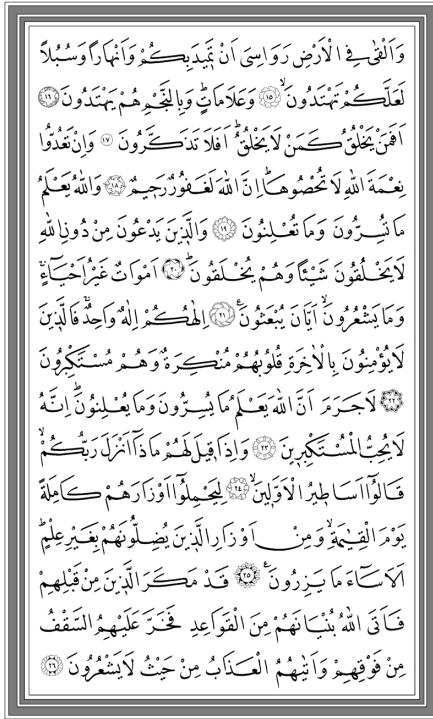 وَاَلْقٰى فِي الْاَرْضِ رَوَاسِيَ اَنْ تَم۪يدَ بِكُمْ وَاَنْهَاراً وَسُبُلاً
لَعَلَّكُمْ تَهْتَدُونَۙ ﴿١٥﴾ وَعَلَامَاتٍۜ وَبِالنَّجْمِ هُمْ يَهْتَدُونَ ﴿١٦﴾
اَفَمَنْ يَخْلُقُ كَمَنْ لَا يَخْلُقُۜ اَفَلَا تَذَكَّرُونَ ﴿١٧﴾ وَاِنْ تَعُدُّوا
نِعْمَةَ اللّٰهِ لَا تُحْصُوهَاۜ اِنَّ اللّٰهَ لَغَفُورٌ رَح۪يمٌ ﴿١٨﴾ وَاللّٰهُ يَعْلَمُ
مَا تُسِرُّونَ وَمَا تُعْلِنُونَ ﴿١٩﴾ وَالَّذ۪ينَ يَدْعُونَ مِنْ دُونِ اللّٰهِ
لَا يَخْلُقُونَ شَيْـٔاً وَهُمْ يُخْلَقُونَۜ ﴿٢٠﴾ اَمْوَاتٌ غَيْرُ اَحْيَٓاءٍۚ
وَمَا يَشْعُرُونَۙ اَيَّانَ يُبْعَثُونَ۟ ﴿٢١﴾ اِلٰهُكُمْ اِلٰهٌ وَاحِدٌۚ فَالَّذ۪ينَ
لَا يُؤْمِنُونَ بِالْاٰخِرَةِ قُلُوبُهُمْ مُنْكِرَةٌ وَهُمْ مُسْتَكْبِرُونَ
﴿٢٢﴾ لَا جَرَمَ اَنَّ اللّٰهَ يَعْلَمُ مَا يُسِرُّونَ وَمَا يُعْلِنُونَۜ اِنَّهُ
لَا يُحِبُّ الْمُسْتَكْبِر۪ينَ ﴿٢٣﴾ وَاِذَا ق۪يلَ لَهُمْ مَاذَٓا اَنْزَلَ رَبُّكُمْۙ
قَالُٓوا اَسَاط۪يرُ الْاَوَّل۪ينَۙ ﴿٢٤﴾ لِيَحْمِلُٓوا اَوْزَارَهُمْ كَامِلَةً
يَوْمَ الْقِيٰمَةِۙ وَمِنْ اَوْزَارِ الَّذ۪ينَ يُضِلُّونَهُمْ بِغَيْرِ عِلْمٍۜ
اَلَا سَٓاءَ مَا يَزِرُونَ۟ ﴿٢٥﴾ قَدْ مَكَرَ الَّذ۪ينَ مِنْ قَبْلِهِمْ
فَاَتَى اللّٰهُ بُنْيَانَهُمْ مِنَ الْقَوَاعِدِ فَخَرَّ عَلَيْهِمُ السَّقْفُ
مِنْ فَوْقِهِمْ وَاَتٰيهُمُ الْعَذَابُ مِنْ حَيْثُ لَا يَشْعُرُونَ ﴿٢٦﴾